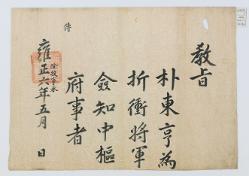 敎旨
朴東亨爲
折衝將軍
僉知中樞
府事者
雍正六年五月 日